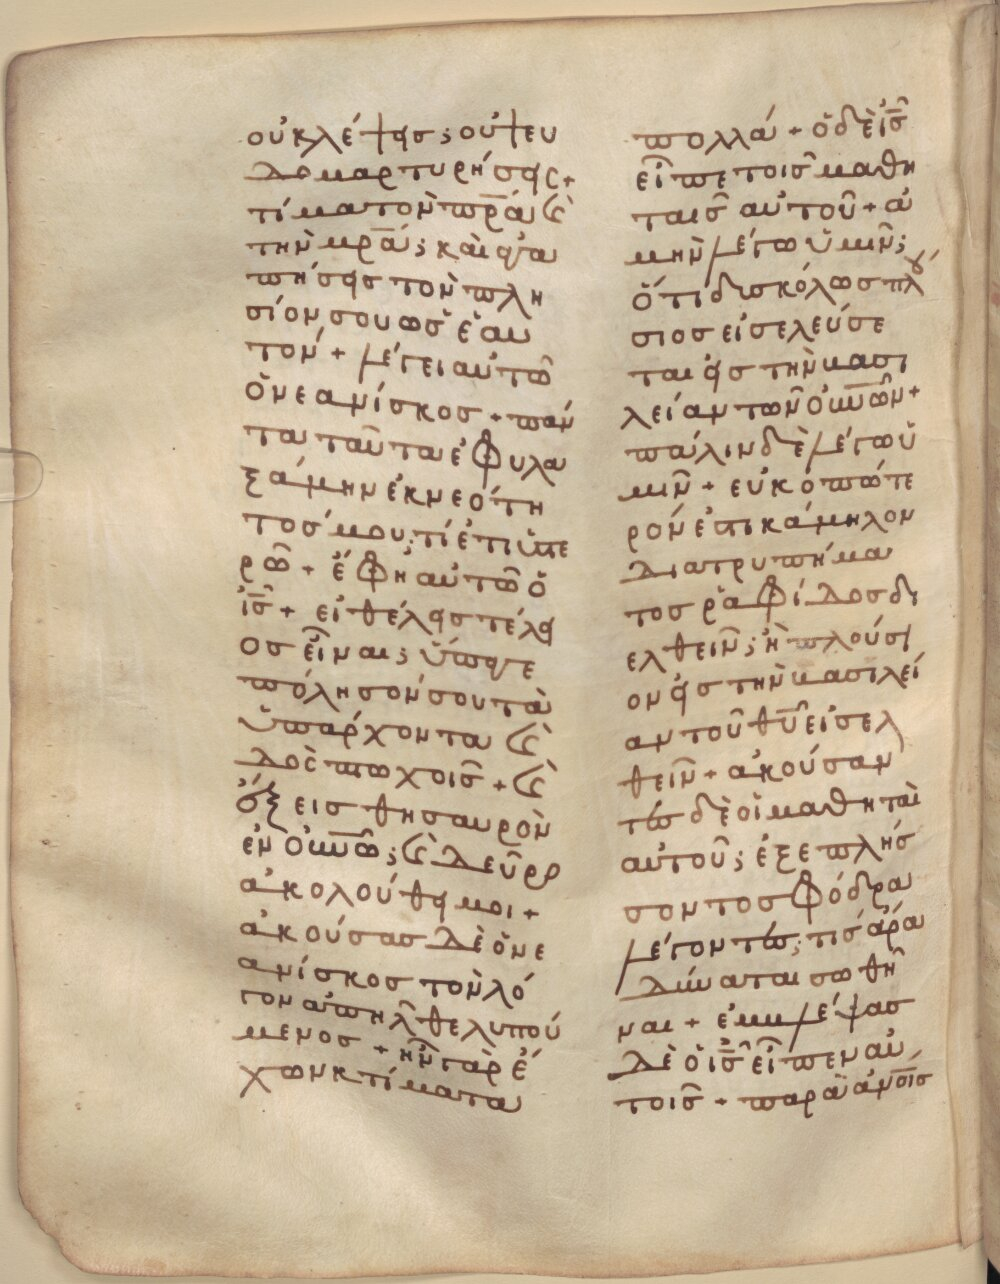 οὐ κλέψεις; οὐ ψευ
δομαρτυρήσεις +
τίμα τὸν π̅ρ̅α̅ κ(αὶ)
τὴν μ̅ρ̅α̅; καὶ ἀγα
πήσεις τὸν πλη
σίον σου ὡς ἑαυ
τόν + λέγει αὐτῶ
ὁ νεανίσκος + πάν
τα ταῦτα ἐφυλα
ξάμην ἐκ νεότη
τός μου; τί ἔτι ὑστε
ρῶ + ἔφη αὐτῶ ὁ
ι̅ς̅ + εἰ θέλεις τέλει
ος εἶναι; ὕπαγε
πόλησόν σου τὰ
ὑπάρχοντα κ(αὶ)
δὸς πτωχοῖς + κ(αὶ)
ἕξεις θησαυρὸν
ἐν ο̅υ̅ν̅ῶ̅; κ(αὶ) δεῦρο
ἀκολούθει μοι +
ἀκούσας δὲ ὁ νε
ανίσκος τὸν λό
γον ἀπῆλθε λυπού
μενος + ἦν γὰρ ἔ
χων κτίματα
πολλά + ὁ δὲ ι̅ς̅
εἶπε τοῖς μαθη
ταῖς αὐτοῦ + ἀ
μὴν λέγω ὑμῖν;
ὅτι δυσκόλως πλού
σιος εἰσελεύσε
ται εἰς τὴν βασι
λείαν τῶν ο̅υ̅ν̅ῶ̅ν +
πάλιν δὲ λέγω ὑ
μῖν + εὐκοπώτε
ρόν ἐστι κάμηλον
διὰ τρυπήμα
τος ραφίδος δι
ελθεῖν; ἢ πλούσι
ον εἰς τὴν βασιλεί
αν τοῦ θ̅υ̅ εἰσελ
θεῖν + ἀκούσαν
τες δὲ οἱ μαθηταὶ
αὐτοῦ; ἐξεπλήσ
σοντο σφόδρα
λέγοντες; τίς ἄρα
δύναται σωθῆ
ναι + ἐμβλέψας
δὲ ὁ ι̅ς̅ εἶπεν αὐ
τοῖς + παρὰ ἀ̅ν̅ο̅ι̅ς̅